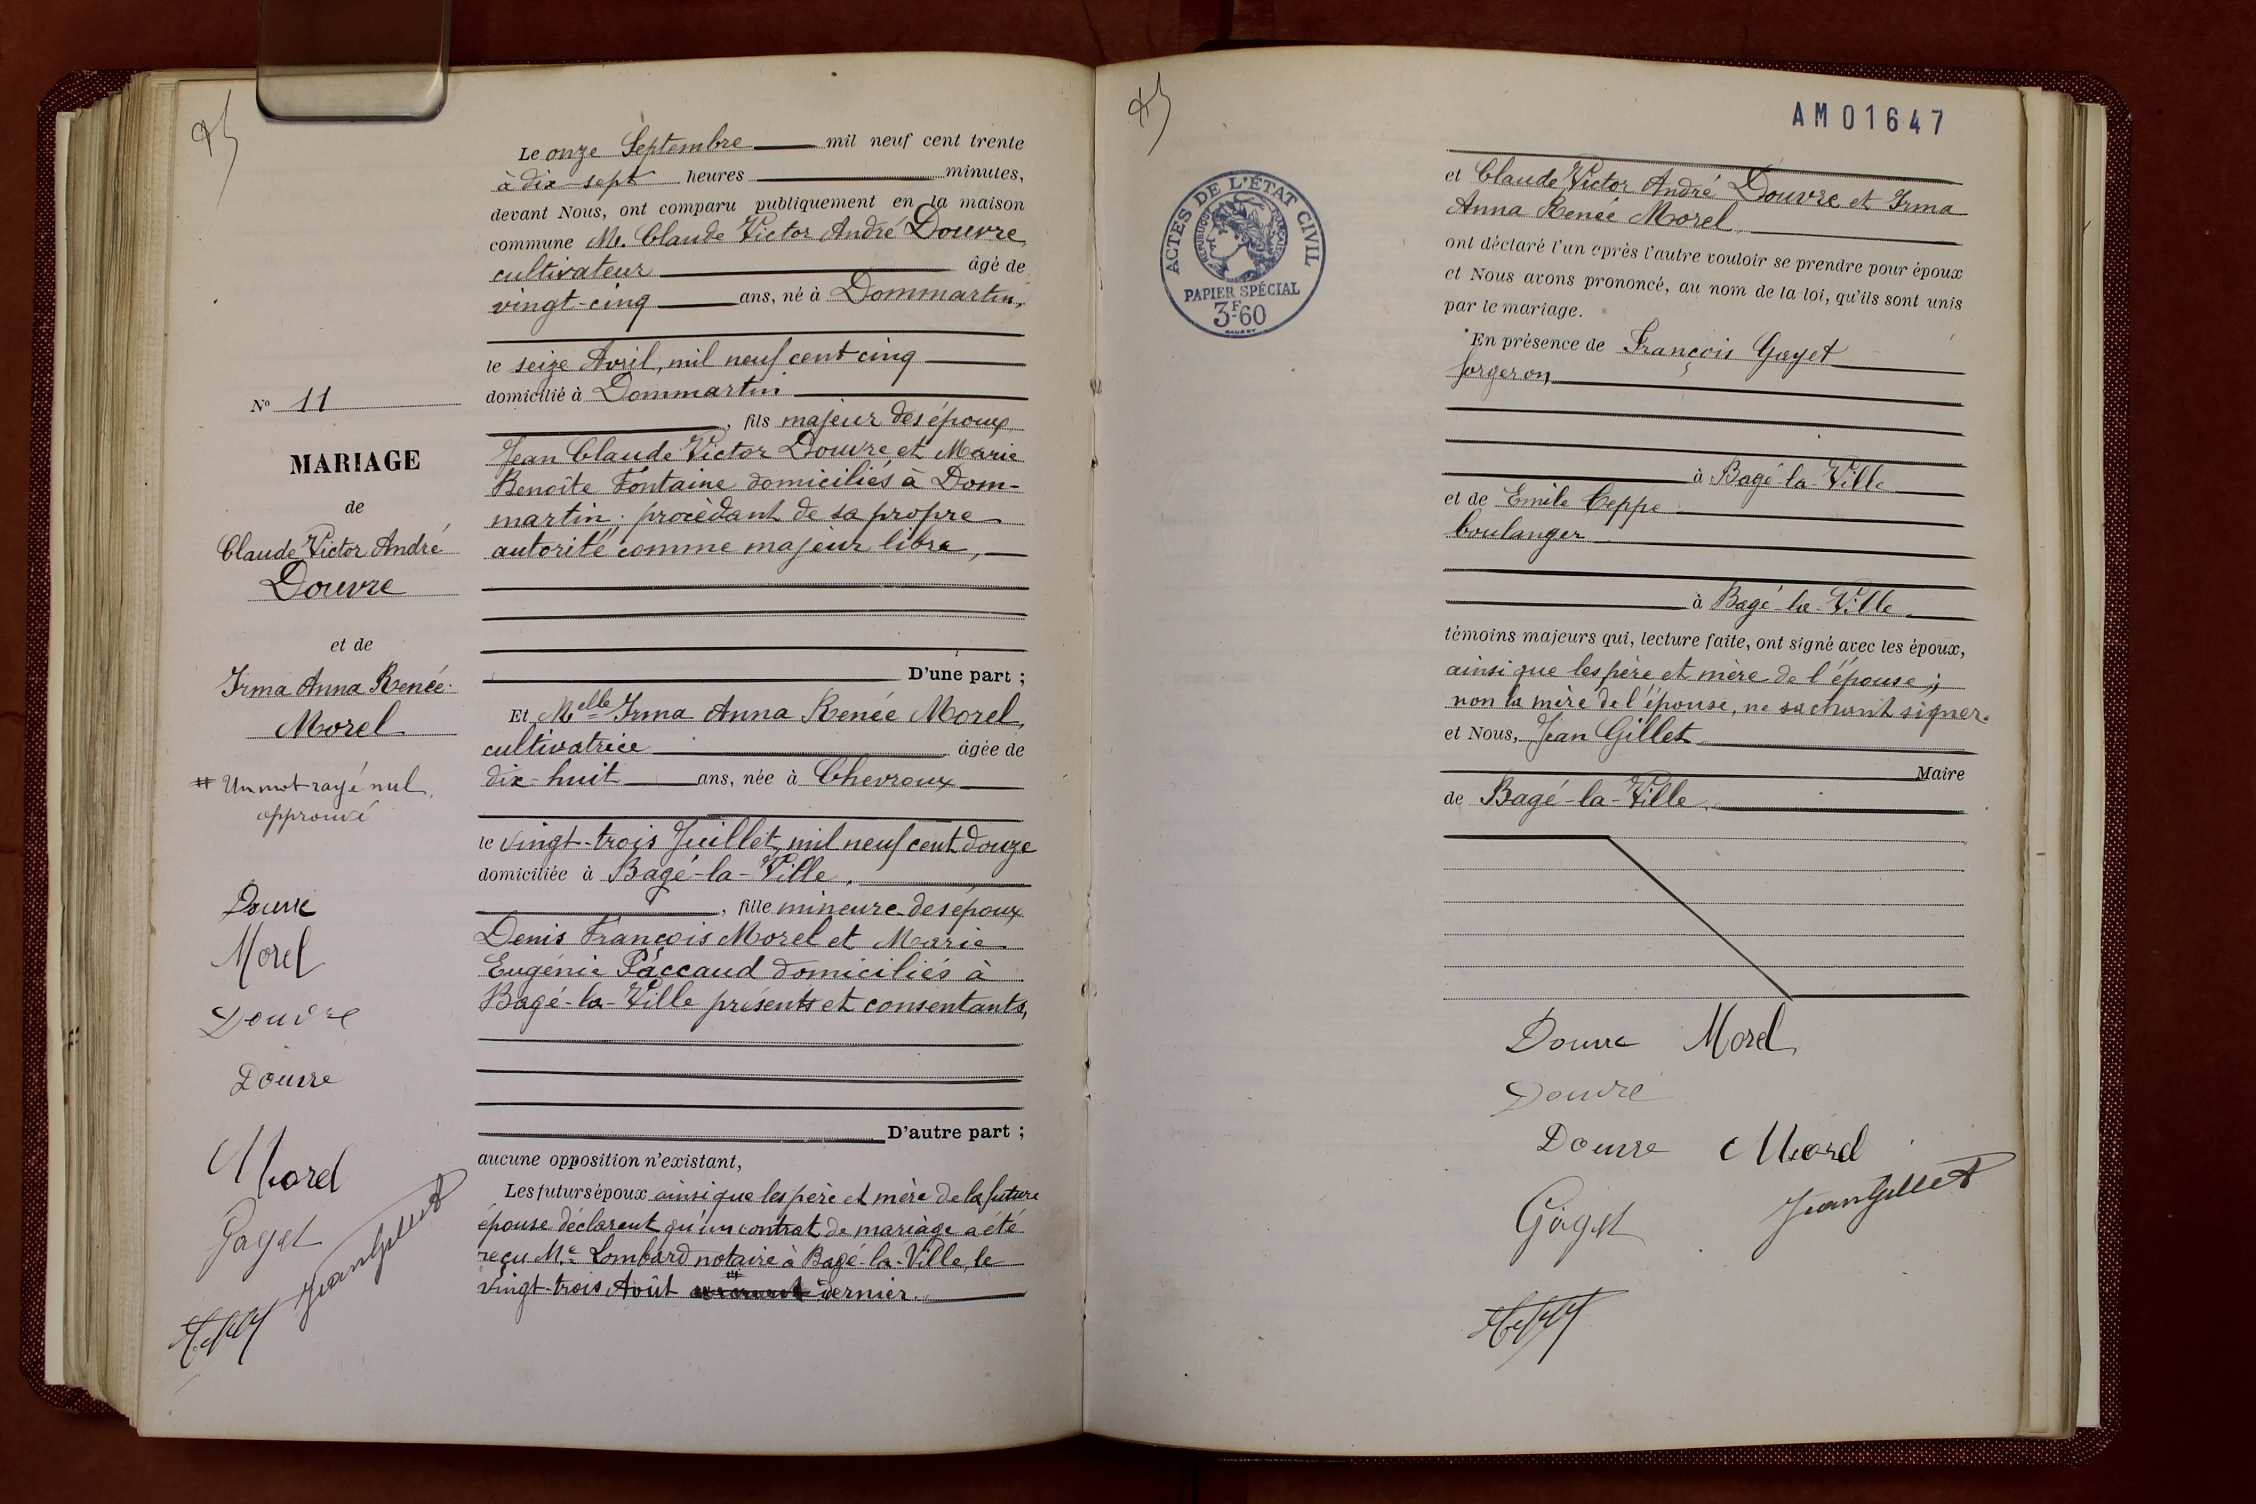 Le onze Septembre mil neuf cent trente
à dix-sept heures minutes,
devant Nous, ont comparu publiquement en la maison
commune M. Claude Victor André Douvre
cultivateur âgé de
vingt-cinq ans, né à Dommartin,
le seize Avril, mil neuf cent cinq
domicilié à Dommartin
, fils majeur des époux
Jean Claude Victor Douvre et Marie
Benoîte Fontaine domiciliés à Dom-
martin; procédant de sa propre
autorité comme majeur libre,
D'une part ;
Et Melle Irma Anna Renée Morel,
cultivatrice âgée de
dix-huit ans, née à Chevroux
le vingt-trois Juillet, mil neuf cent douze
domiciliée à Bagé-la-Ville,
, fille mineure des époux
Denis François Morel et Marie
Eugénie Paccaud domiciliés à
Bagé-la-Ville présents et consentants,
D'autre part ;
aucune opposition n'existant,
Les futurs époux ainsi que les père et mère de la future
épouse déclarent qu'un contrat de mariage a été
reçu Me Lombard notaire à Bagé-la-Ville, le
vingt-trois Août dernier.
No 11
MARIAGE
de
Claude Victor André
Douvre
et de
Irma Anna Renée
Morel
# Un mot rayé nul,
approuvé
Douvre
Morel
Douvre
Douvre
Morel
Gayet
Jean Gillet
AM01647
ACTES DE L'ÉTAT CIVIL
RÉPUBLIQUE FRANÇAISE
PAPIER SPÉCIAL
3F60
et Claude Victor André Douvre et Irma
Anna Renée Morel
ont déclaré l'un après l'autre vouloir se prendre pour époux
et Nous avons prononcé, au nom de la loi, qu'ils sont unis
par le mariage.
En présence de François Gayet
forgeron
à Bagé-la-Ville
et de Emile Ceppe
boulanger
à Bagé-la-Ville
témoins majeurs qui, lecture faite, ont signé avec les époux,
ainsi que les père et mère de l'épouse;
non la mère de l'épouse, ne sachant signer.
et Nous, Jean Gillet
Maire
de Bagé-la-Ville
Douvre Morel
Douvre
Douvre Morel
Gayet Jean Gillet